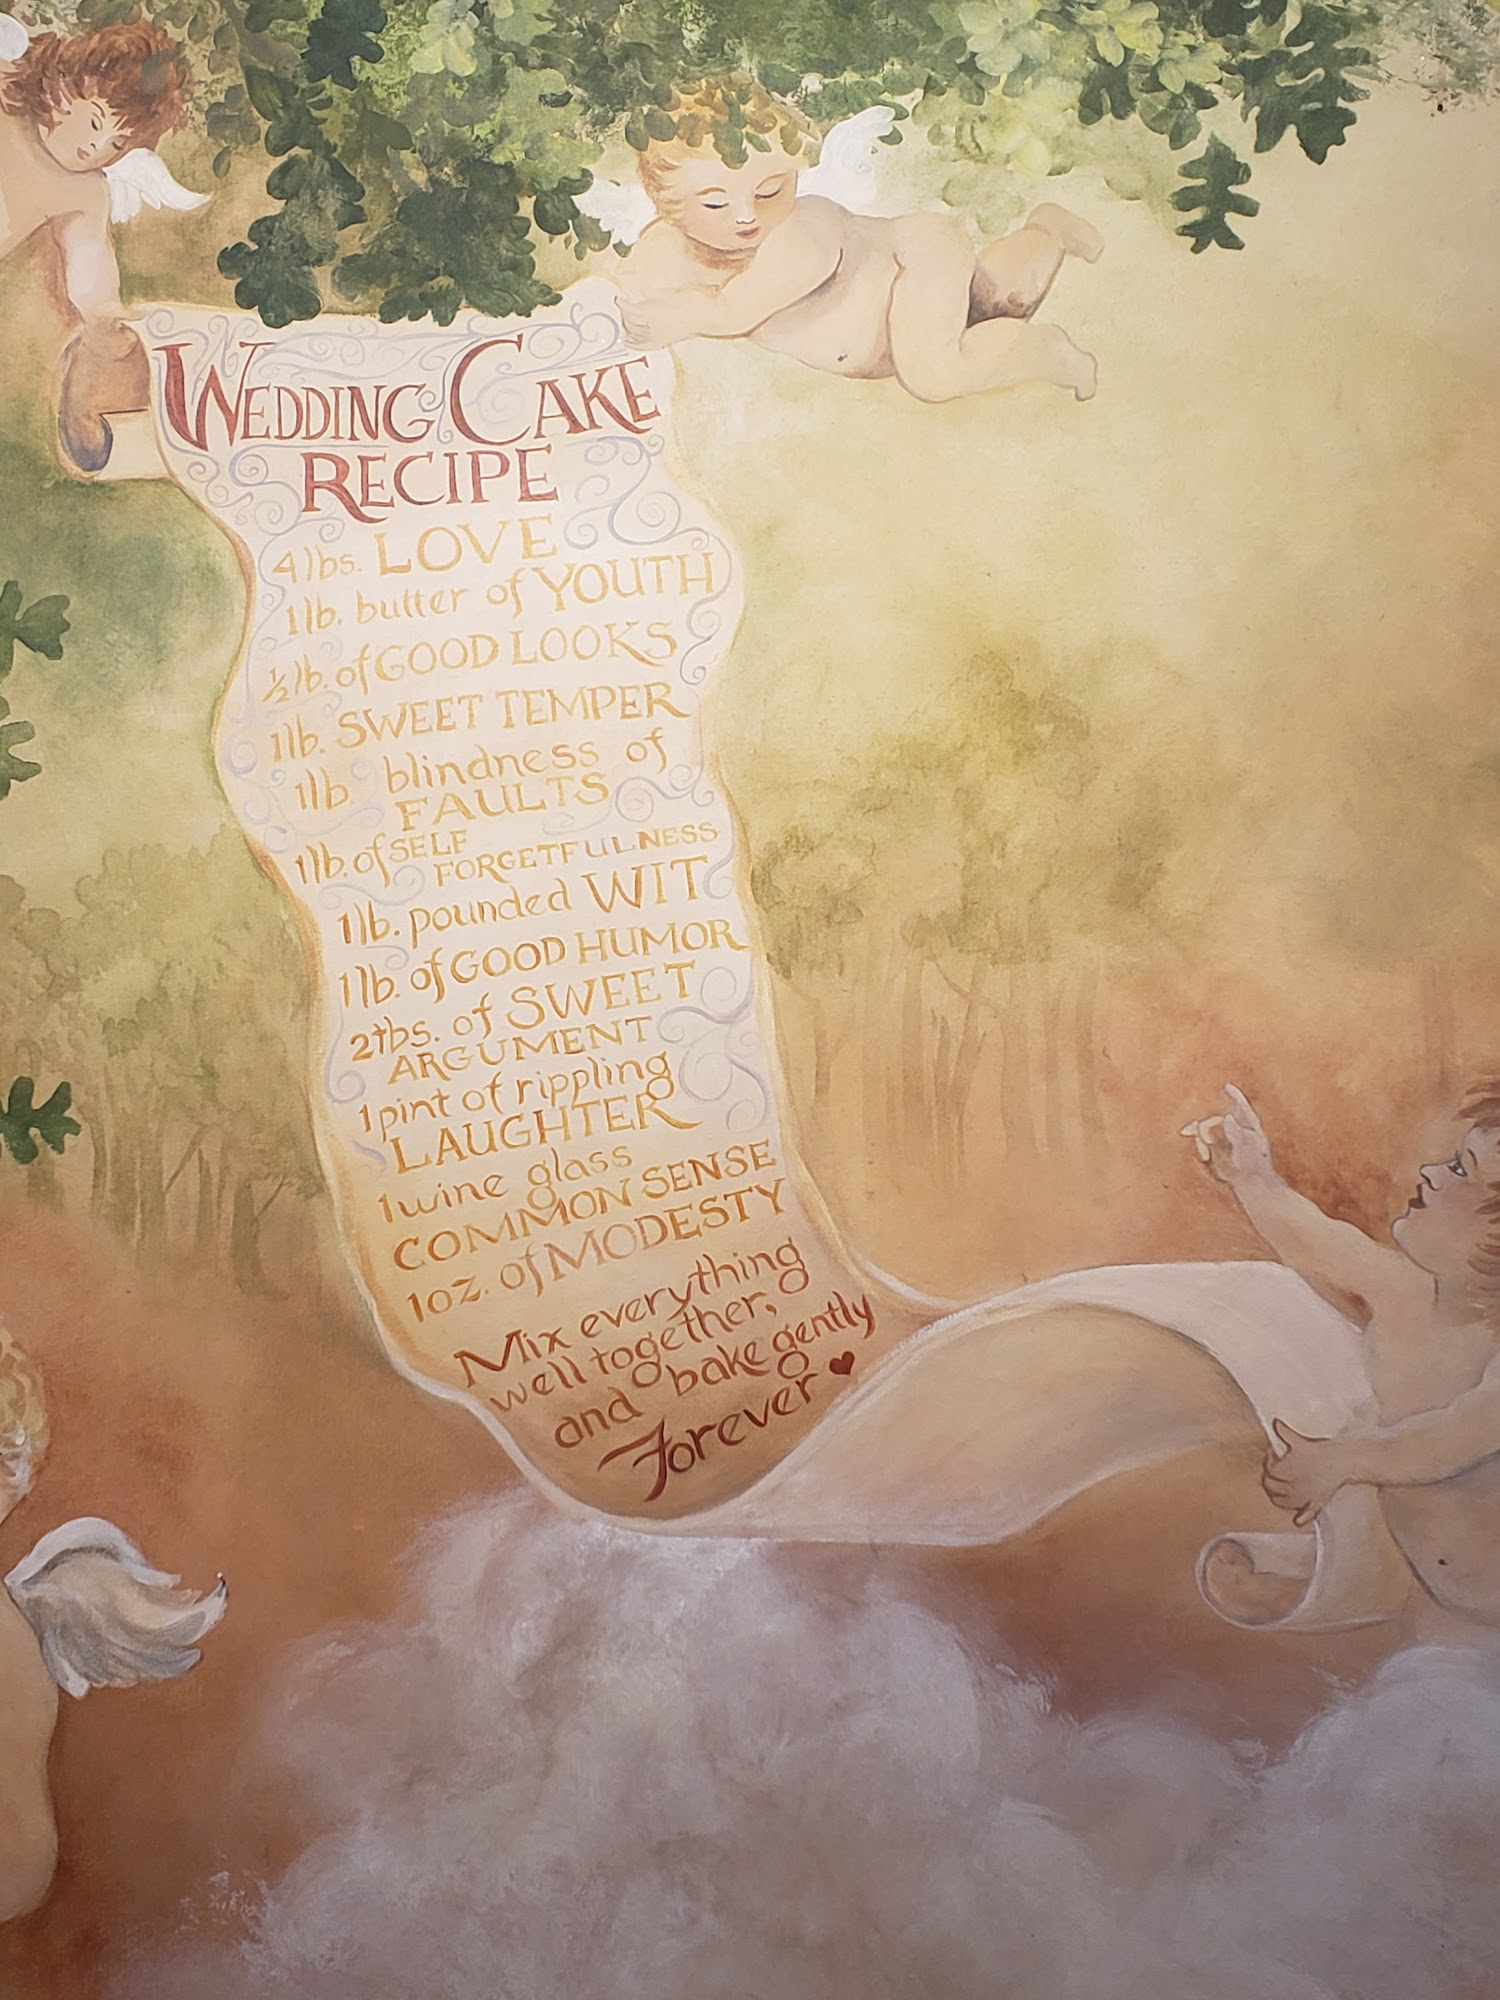 WEDDING CAKE
RECIPE
4 lbs. LOVE
1 lb. butter of YOUTH
½ lb. of GOOD LOOKS
1 lb. SWEET TEMPER
1 lb. blindness of
FAULTS
1 lb. of SELF
FORGETFULNESS
1 lb. pounded WIT
1 lb. of GOOD HUMOR
2 tbs. of SWEET
ARGUMENT
1 pint of rippling
LAUGHTER
1 wine glass
COMMON SENSE
1 oz. of MODESTY
Mix everything
well together,
and bake gently
Forever ♥